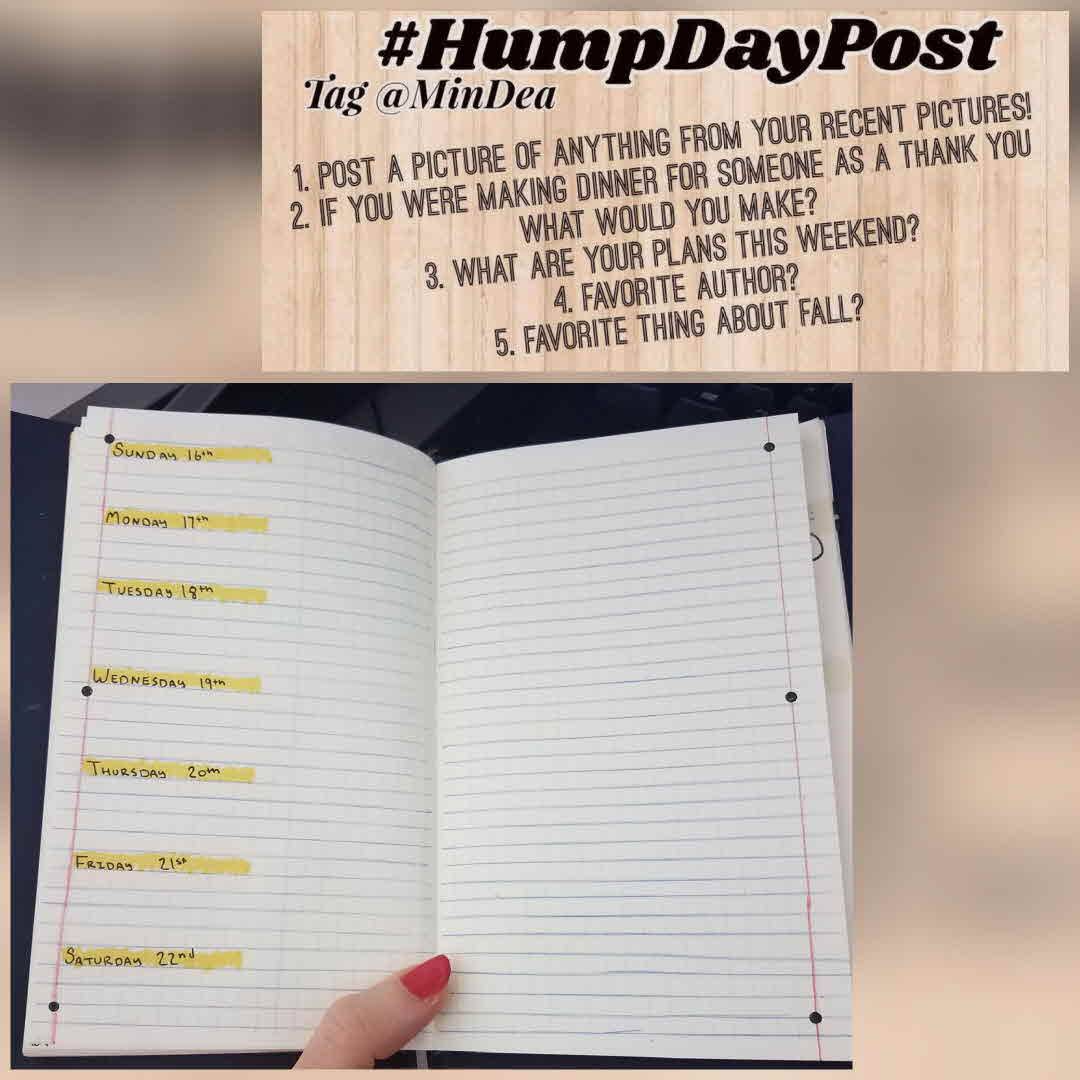 #HumpDayPost
Tag @MinDea
1. POST A PICTURE OF ANYTHING FROM YOUR RECENT PICTURES!
2. IF YOU WERE MAKING DINNER FOR SOMEONE AS A THANK YOU
WHAT WOULD YOU MAKE?
3. WHAT ARE YOUR PLANS THIS WEEKEND?
4. FAVORITE AUTHOR?
5. FAVORITE THING ABOUT FALL?
SUNDAY 16th
MONDAY 17th
TUESDAY 18th
WEDNESDAY 19th
THURSDAY 20th
FRIDAY 21st
SATURDAY 22nd